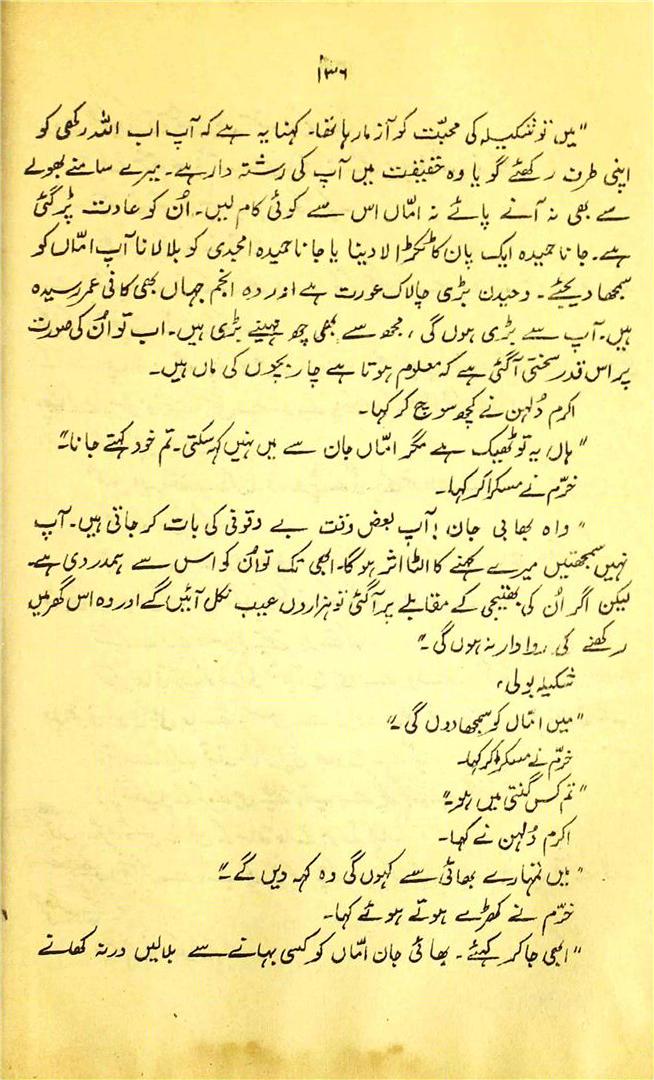 ۱۳۶
"میں تو شکیلہ کی محبّت کو آزما رہا تھا۔ کہنا یہ ہے کہ آپ اب اللہ رکھی کو
اپنی طرف رکھئے گویا وہ حقیقت میں آپ کی رشتہ دار ہے۔ میرے سامنے بھولے
سے بھی نہ آنے پائے نہ امّاں اس سے کوئی کام لیں۔ اُن کو عادت پڑ گئی
ہے۔ جانا حمیدہ ایک پان کا ٹکڑا لا دینا یا جانا حمیدہ امجدی کو بلا لانا آپ امّاں کو
سمجھا دیجئے۔ وحیدن بڑی چالاک عورت ہے اور وہ انجم جہاں بھی کافی عمر رسیدہ
ہیں۔ آپ سے بڑی ہوں گی، مجھ سے بھی چھ مہینے بڑی ہیں۔ اب تو اُن کی صورت
پر اس قدر سختی آ گئی ہے کہ معلوم ہوتا ہے چار بچوں کی ماں ہیں۔
اکرم دُلہن نے کچھ سوچ کر کہا۔
"ہاں یہ تو ٹھیک ہے مگر امّاں جان سے میں نہیں کہہ سکتی۔ تم خود کہتے جانا۔"
خرّم نے مسکرا کر کہا۔
"واہ بھابی جان! آپ بعض وقت بے وقوفی کی بات کر جاتی ہیں۔ آپ
نہیں سمجھتیں میرے کہنے کا الٹا اثر ہوگا۔ ابھی تک تو اُن کو اس سے ہمدردی ہے۔
لیکن اگر اُن کی بھتیجی کے مقابلے پر آ گئی تو ہزاروں عیب نکل آئیں گے اور وہ اس گھر میں
رکھنے کی روادار نہ ہوں گی۔"
شکیلہ بولی،
"میں امّاں کو سمجھا دوں گی۔"
خرّم نے مسکرا کر کہا۔
"تم کس گنتی میں ہو۔"
اکرم دُلہن نے کہا۔
"میں تمہارے بھائی سے کہوں گی وہ کہہ دیں گے۔"
خرّم نے کھڑے ہوتے ہوئے کہا۔
"ابھی جا کر کہئے۔ بھائی جان امّاں کو کسی بہانے سے بلا لیں ورنہ کھانے